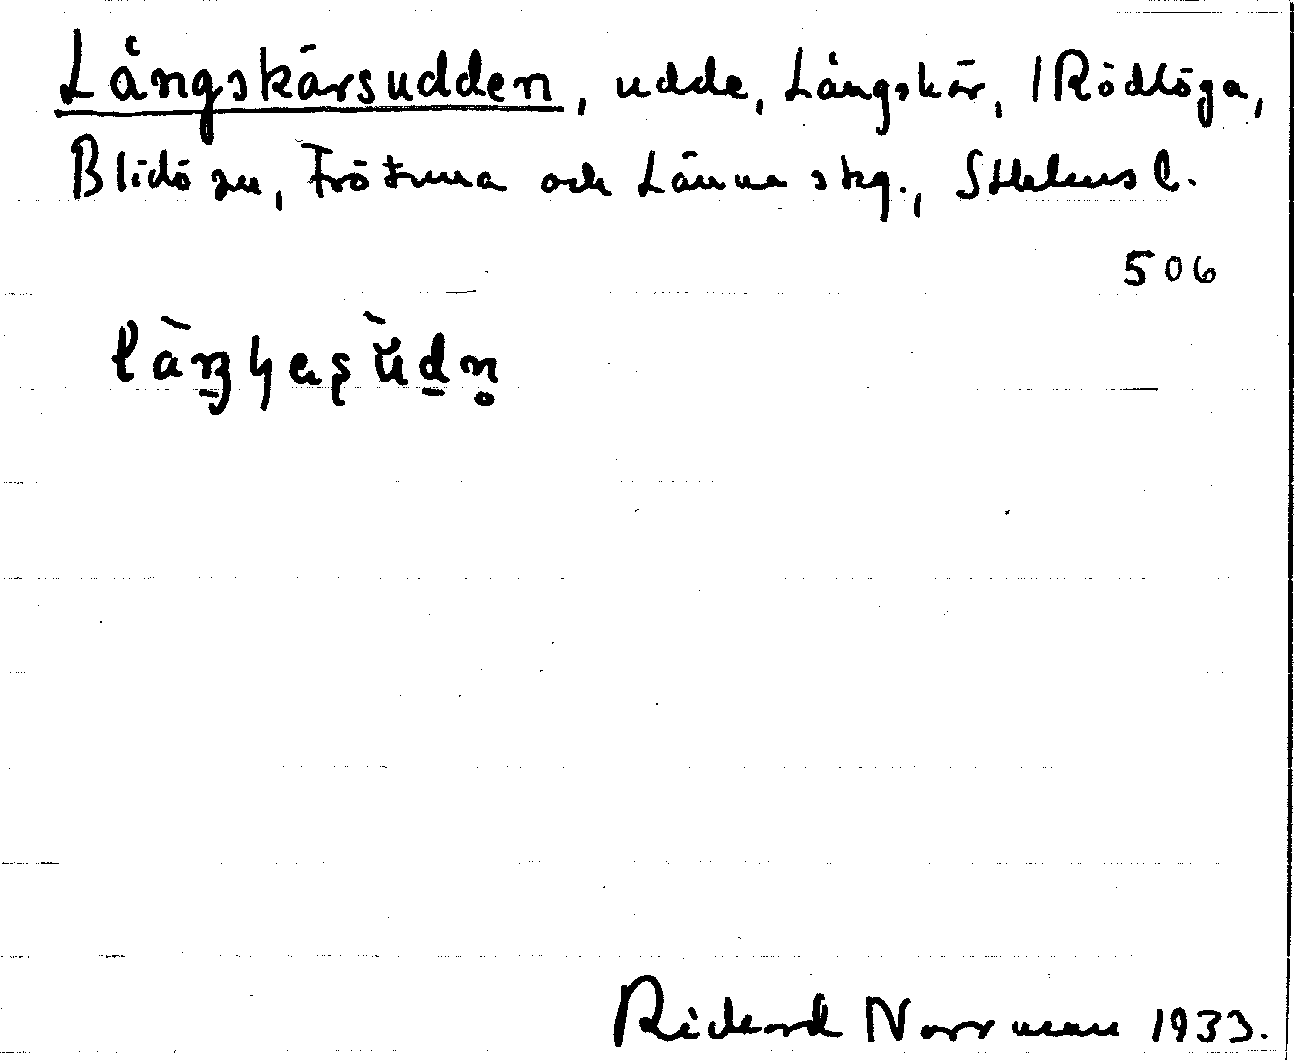 Långskärsudden, udde, Långskär, 1 Rödlöga,
Blidö sn, Frötuna och Länna skg., Sthlms l.
506
Rickard Norrman 1933.